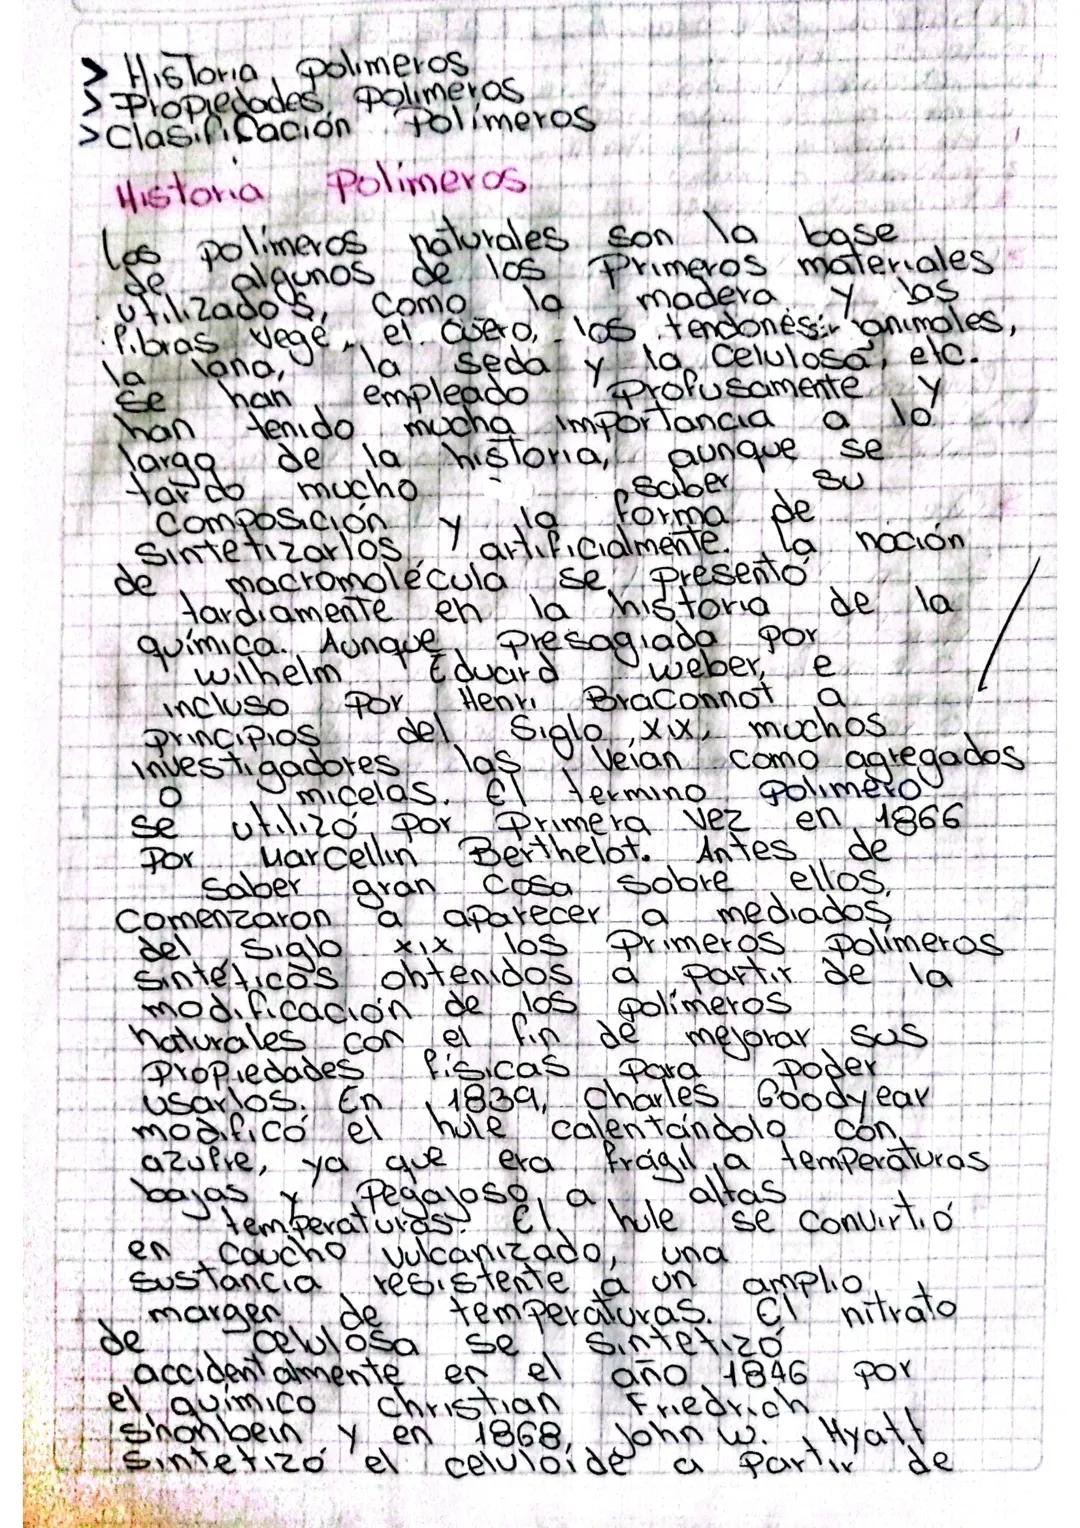 > Historia polimeros
> Propiedades polimeros
> Clasificación Polimeros
Historia Polimeros
Los polimeros naturales son la base
de algunos de los Primeros materiales
utilizados, como la madera y las
fibras vege, el cuero, los tendones animales,
la lana, la seda y la celulosa, etc.
se han empleado Profusamente y
han tenido mucha importancia a lo
largo de la historia, aunque se
tardo mucho saber su
composición y la forma de
sintetizarlos artificialmente. La noción
de macromolécula se presentó
tardiamente en la historia de la
química. Aunque presagiada por
wilhelm Eduard weber, e
incluso por Henri Braconnot a
principios del Siglo XIX, muchos
investigadores las Veían como agregados
o micelas. El termino polimero
se utilizó por Primera vez en 1866
por Marcellin Berthelot. Antes de
saber gran cosa sobre ellos,
comenzaron a aparecer a mediados
del siglo XIX los Primeros polímeros
sintéticos obtenidos a partir de la
modificación de los polímeros
naturales con el fin de mejorar sus
propiedades físicas para poder
usarlos. En 1839, Charles Goodyear
modificó el hule calentándolo con
azufre, ya que era frágil a temperaturas
bajas y Pegajoso a altas
temperaturas. El hule se convirtió
en caucho vulcanizado, una
sustancia resistente a un amplio
margen de temperaturas. El nitrato
de celulosa se sintetizó
accidentalmente en el año 1846 por
el químico christian Friedrich
Shonbein y en 1868, John W. Hyatt
sintetizó el celuloide a partir de